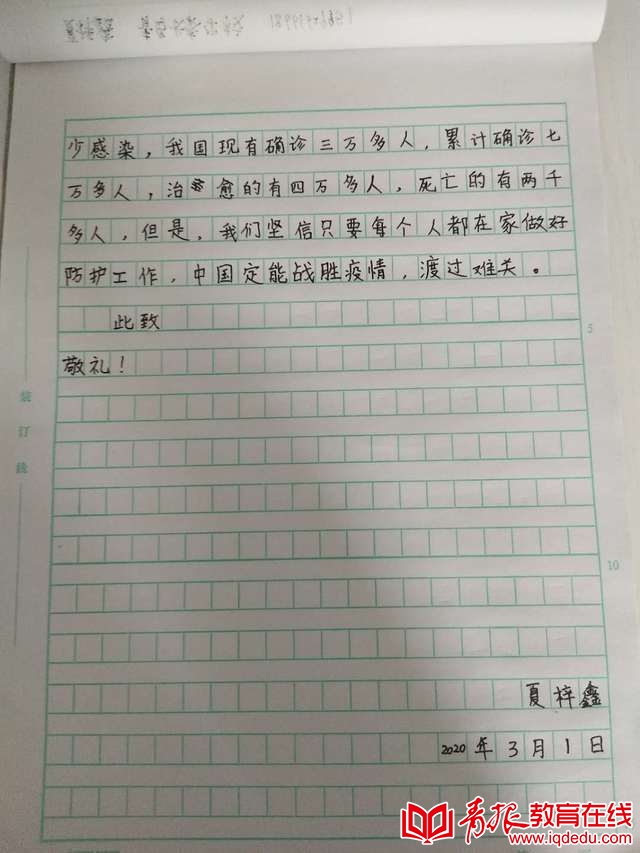 少感染，我国现有确诊三万多人，累计确诊七
万多人，治愈的有四万多人，死亡的有两千
多人，但是，我们坚信只要每个人都在家做好
防护工作，中国定能战胜疫情，渡过难关。
此致
5
敬礼！
装
订
线
10
夏梓鑫
2020年3月1日
青报教育在线
www.iqdedu.com